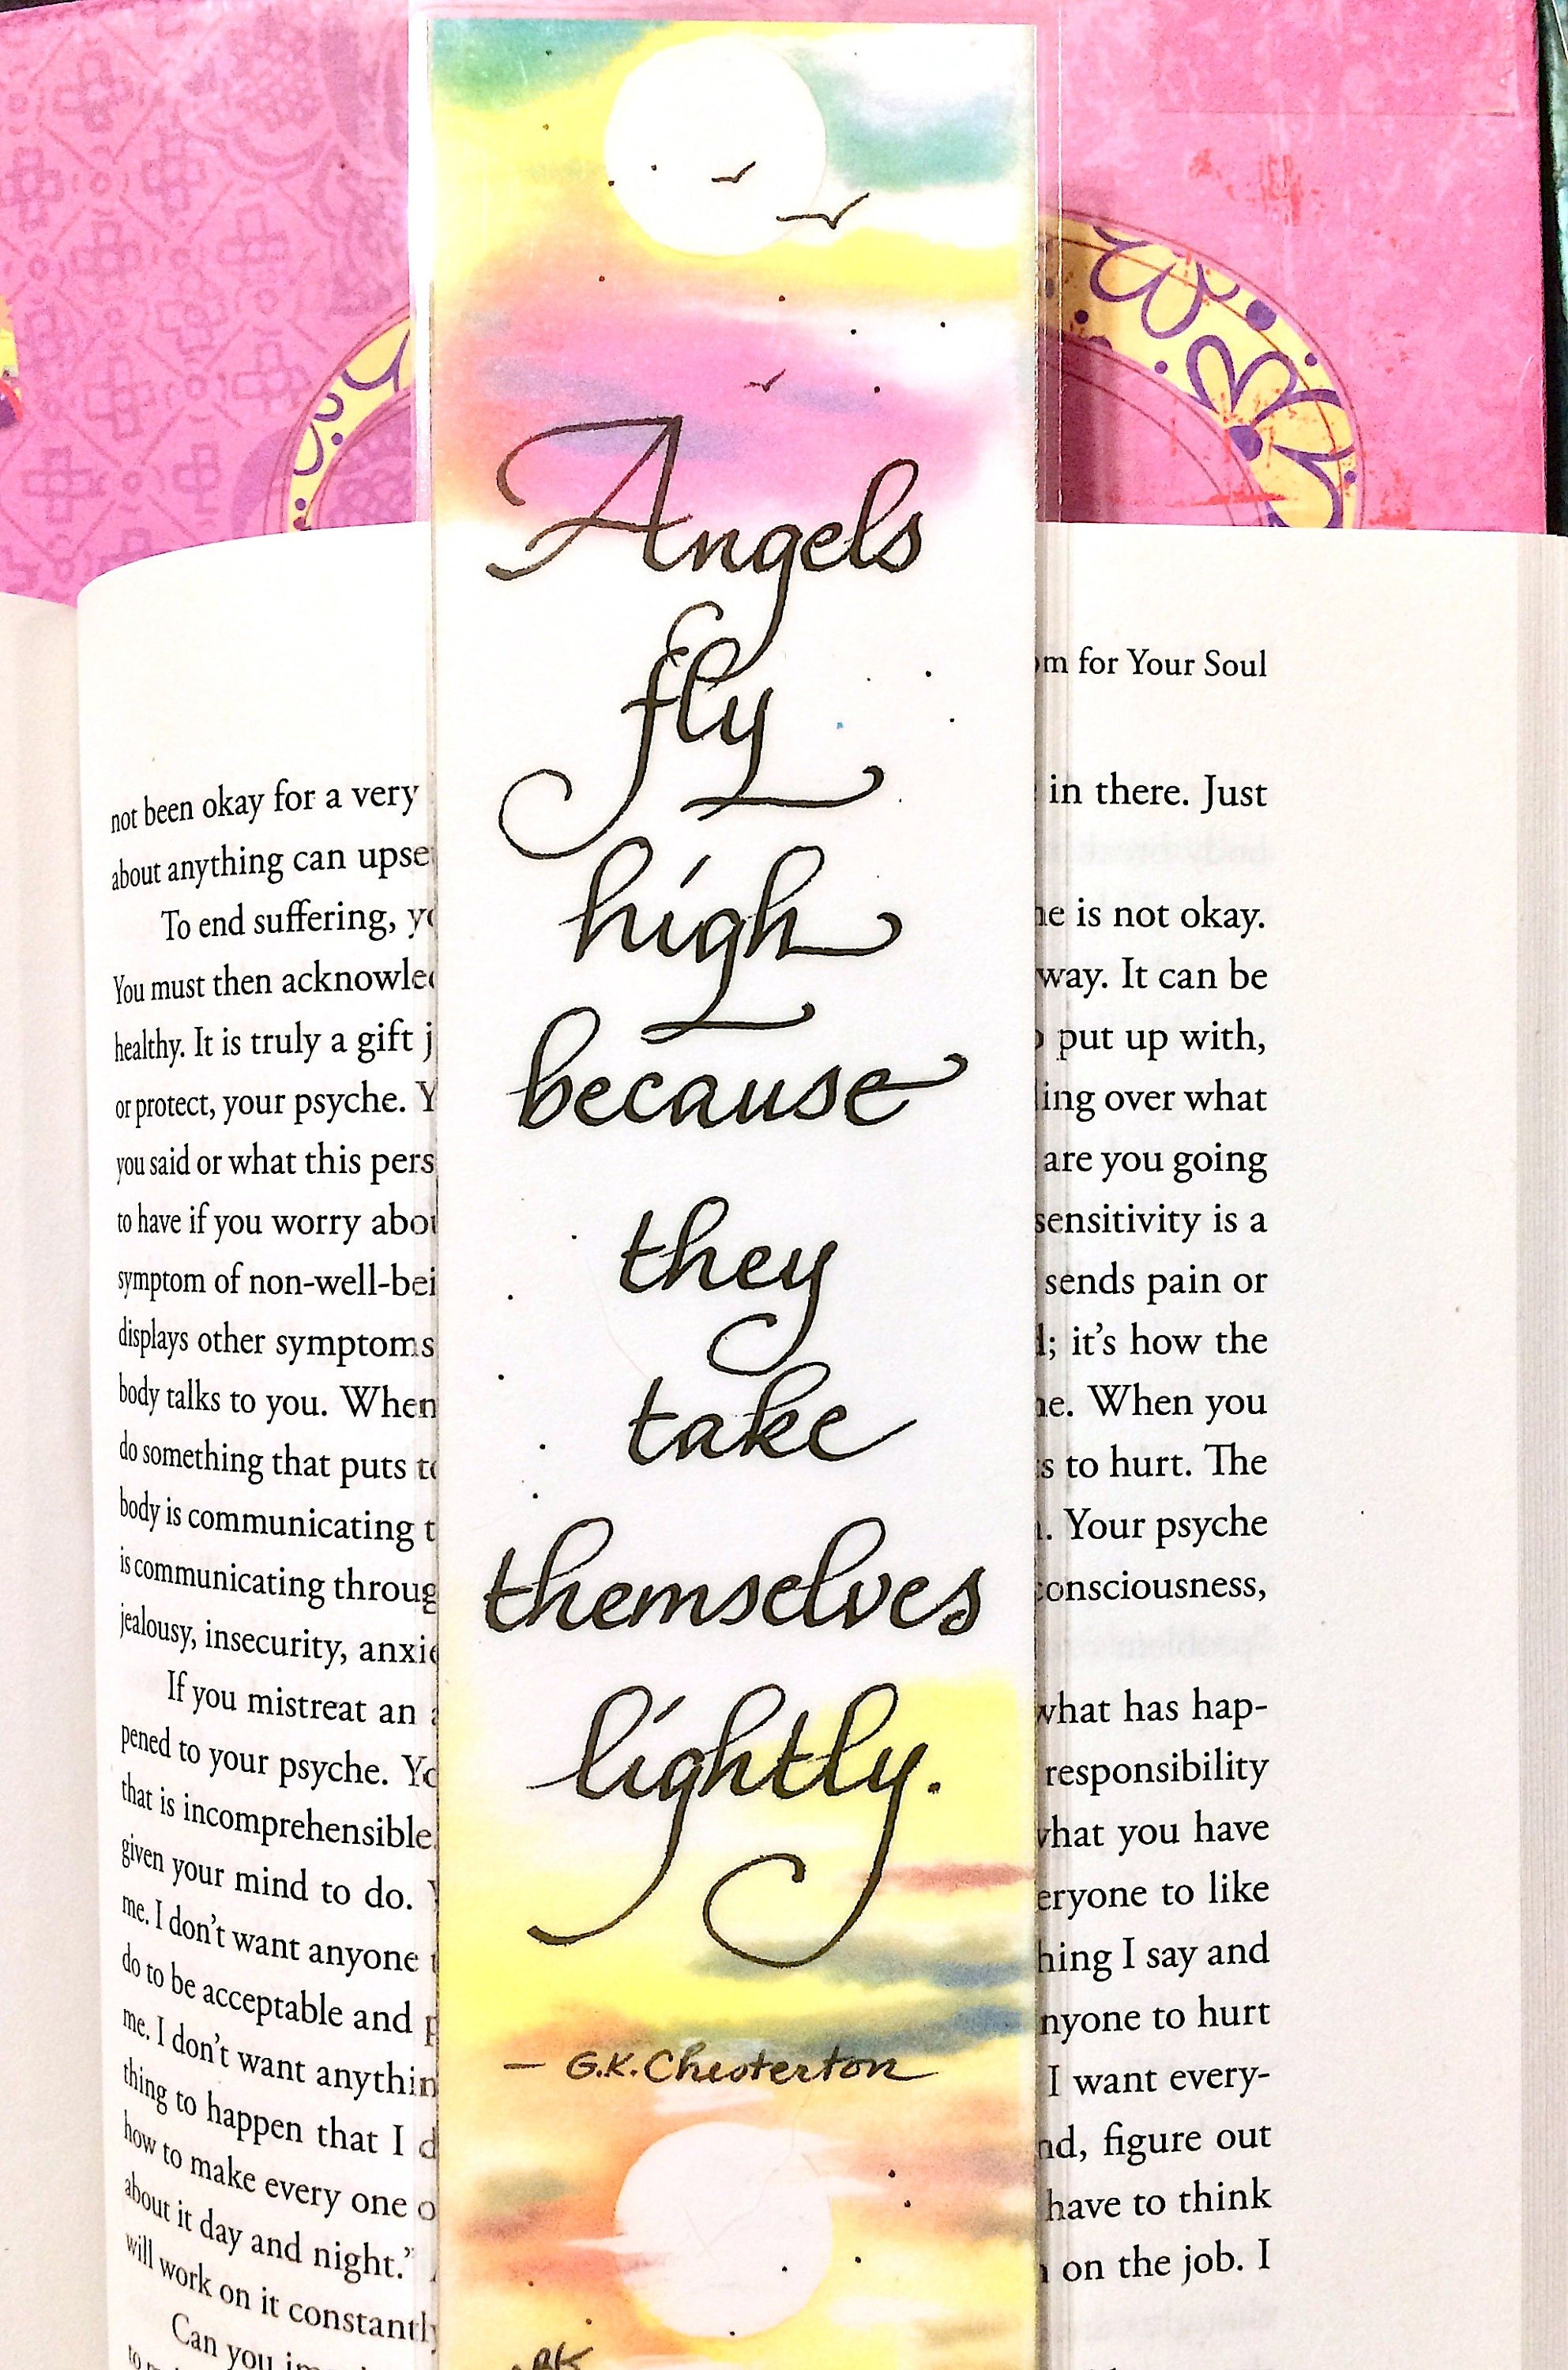 Angels
fly
high
because
they
take
themselves
lightly.
— G.K. Chesterton
BK
not been okay for a very
about anything can
To end suffering,
You must then
healthy. It is truly a gift
or protect, your psyche.
you said or what this
to have if you worry
symptom of
displays other symptoms
body talks to you. When
do something that puts
body is communicating
is communicating
jealousy, insecurity,
If you mistreat an
pened to your psyche.
that is incomprehensible.
given your mind to do.
me. I don't want anyone
do to be acceptable and
me. I don't want
thing to happen that I
how to make every one
about it day and night."
will work on it
Can you
for Your Soul
in there. Just
is not okay.
way. It can be
put up with,
over what
are you going
sensitivity is a
sends pain or
it's how the
When you
to hurt. The
Your psyche
consciousness,
what has hap-
responsibility
what you have
to like
I say and
to hurt
I want every-
figure out
have to think
on the job. I